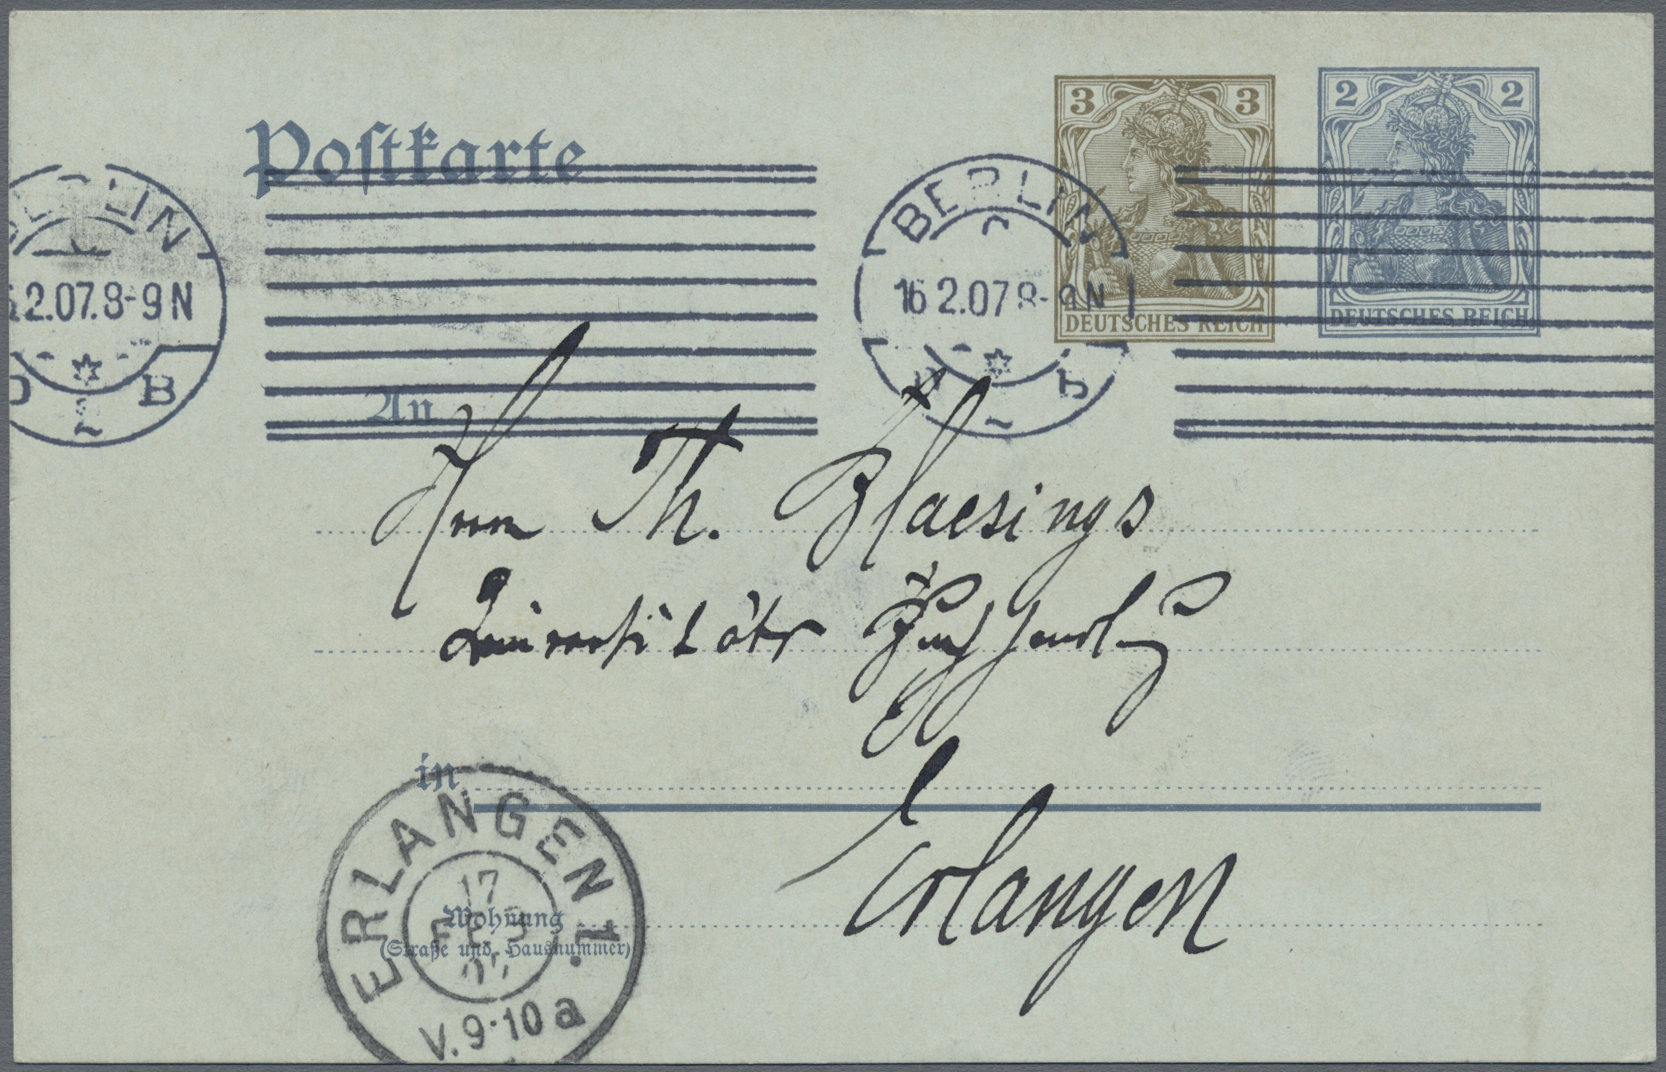 Postkarte
3 3
DEUTSCHES REICH
2 2
DEUTSCHES REICH
BERLIN
2.07.8-9N
B
2
BERLIN
16 2.07 8-9N
2
An
Herrn Th. Blaesings
Universitäts
in
Erlangen
ERLANGEN 1.
17
FEB
07
V.9-10a
Wohnung
(Straße und Hausnummer)